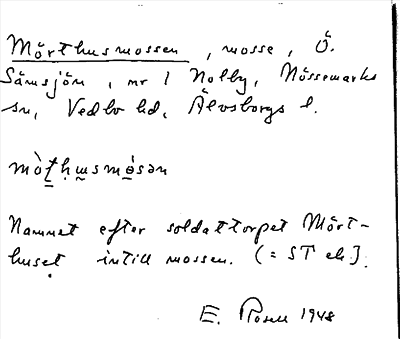 Mörthusmossen, mosse, Ö.
Sämsjön, nr 1 Nolby, Nössemarks
sn, Vedbo hd, Älvsborgs l.
Namnet efter soldattorpet Mört-
huset intill mossen. (= ST ek).
E. Rosell 1948